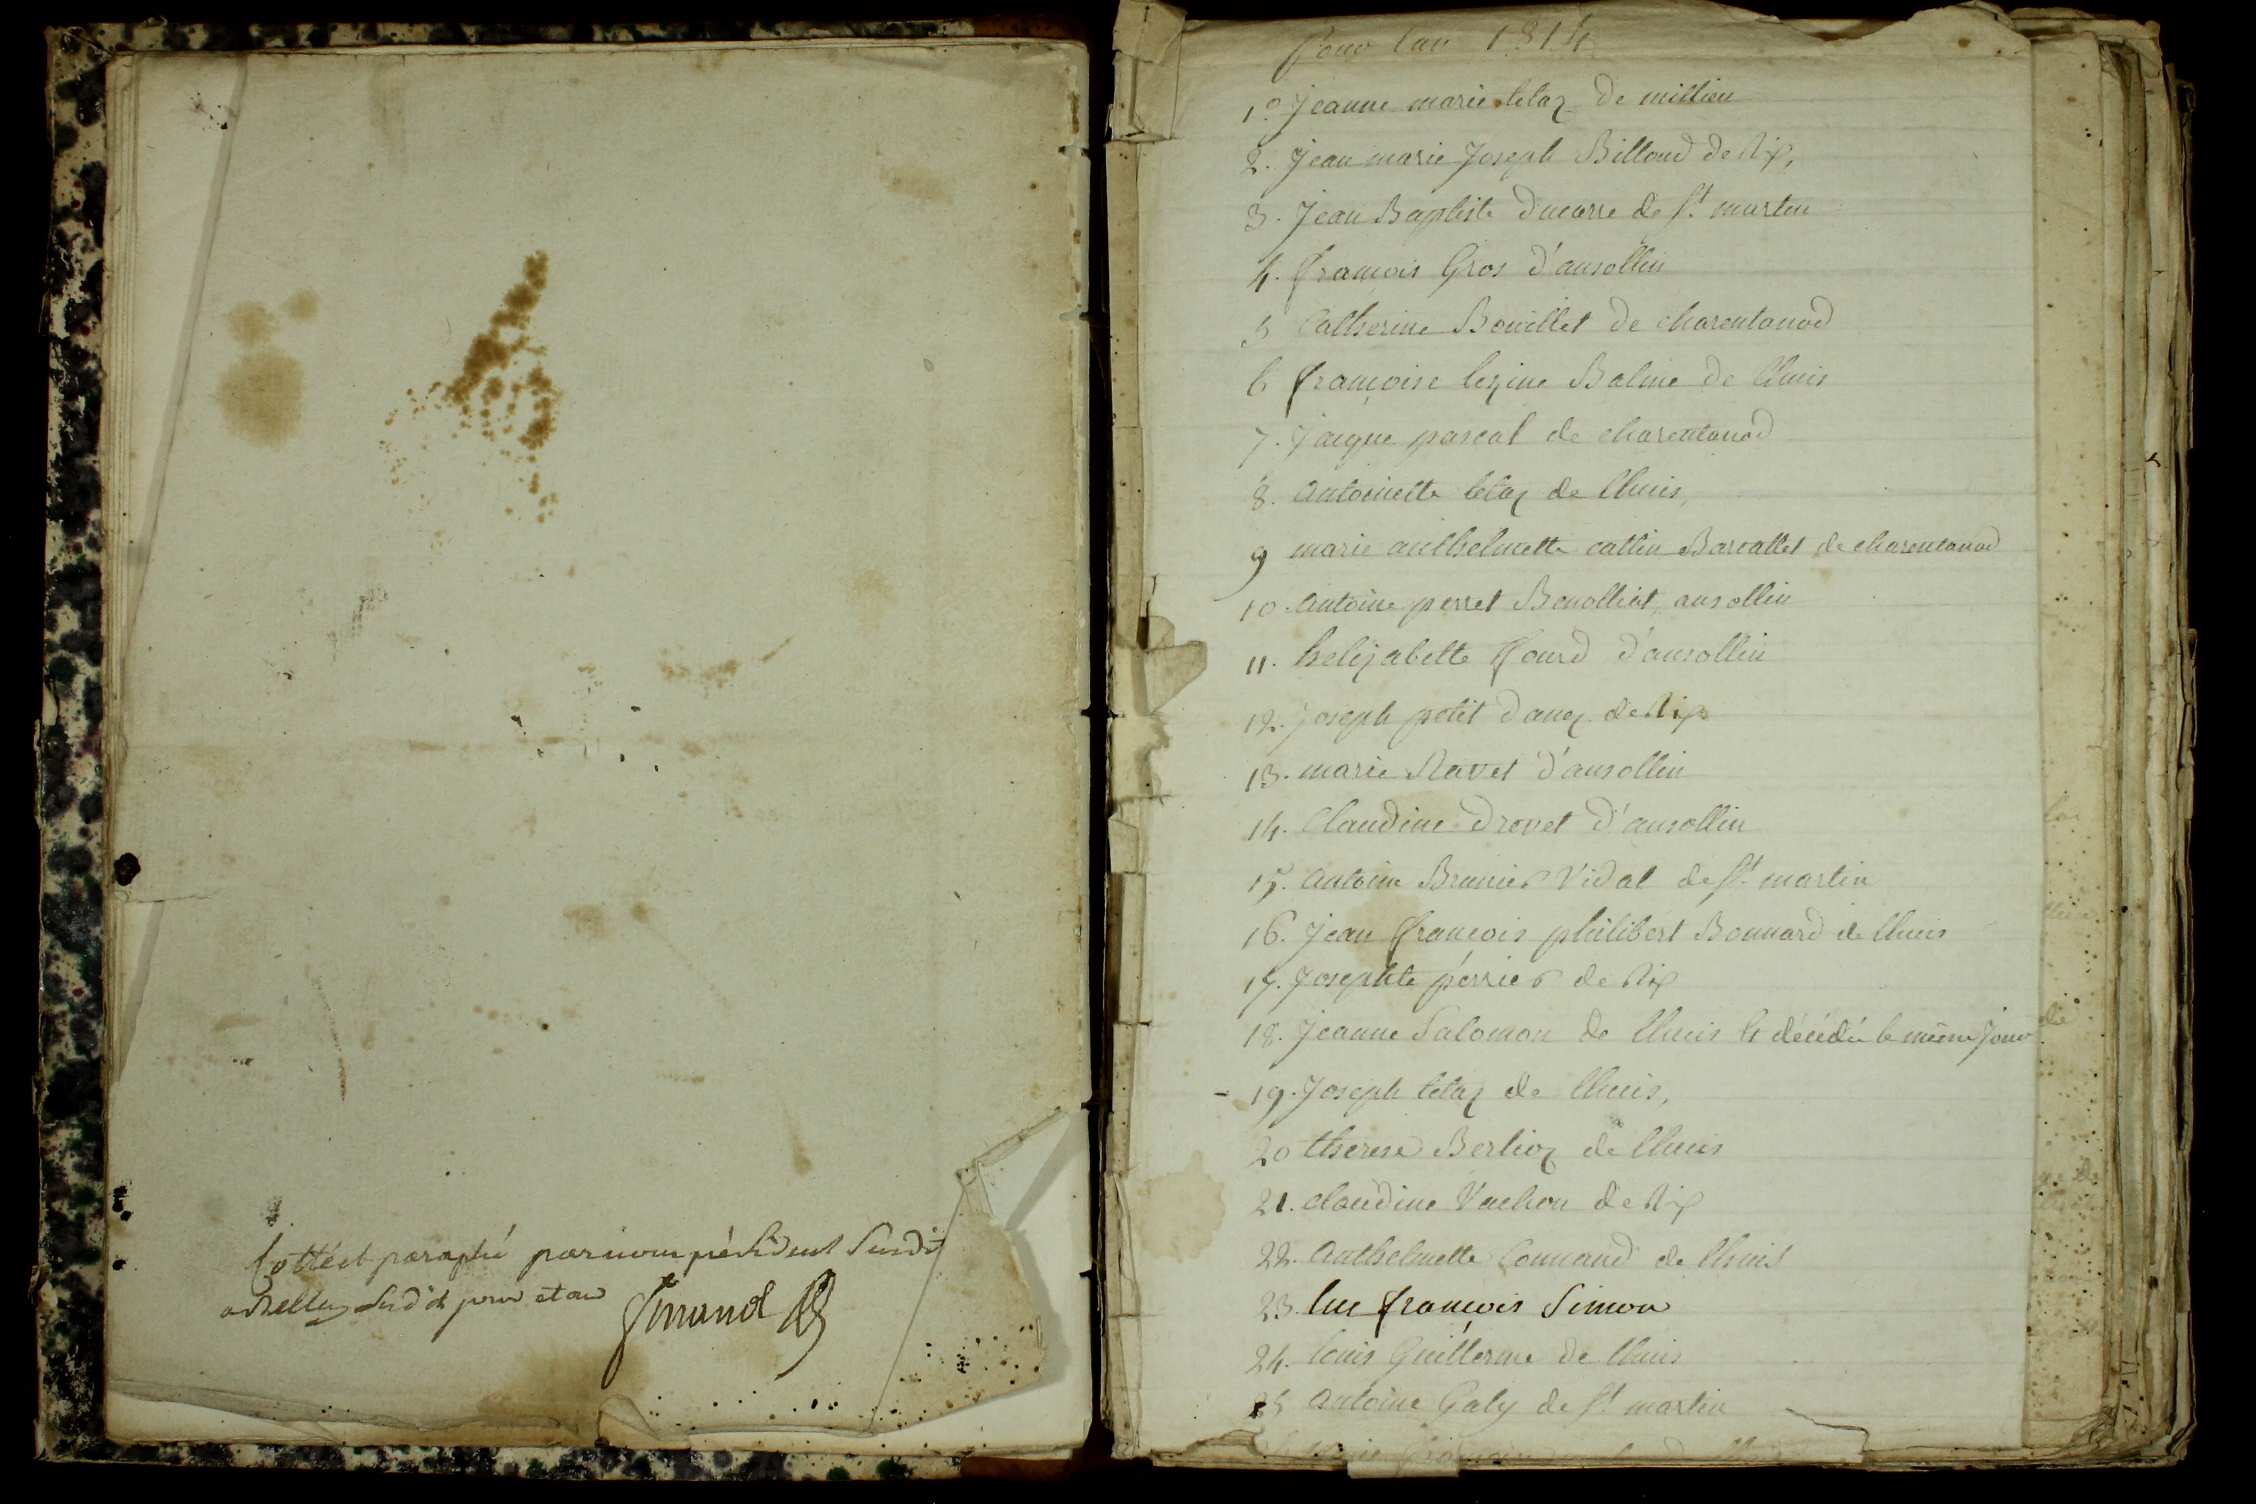 Cottéet paraphé par nous président Susdit
a Belley Susdit jour et an Girrand
Pour lan 1814
1° Jeanne marie tetaz de millieu
2. Jean marie Joseph Billoud de Rix,
3. Jean Baptiste ducarre de St martin
4. françois Gros d'ansollin
5 Catherine Bouillet de charentonod
6 françoise lezine Balme de lhuis
7. Jacque pascal de charentonod
8. Antoinette tetaz de lhuis,
9 marie anthelmette cattin Barcallet de charentonod
10. Antoine perret Benolliat, ansollin
11. helizabette fourd d'ansollin
12. Joseph petit danez de Rix
13. marie Ravet d'ansollin
14. Claudine Drovet d'ansollin
15. Antoine Brunier Vidal de St martin
16. Jean françois philibert Bonnard de lhuis
17. Josephte perrier de Rix
18. Jeanne Salomon de lhuis et décédée le même jour
19. Joseph tetaz de lhuis,
20 therese Berlioz de lhuis
21. claudine Vachon de Rix
22. Anthelmette Connand de lhuis
23. luc françois Simon
24. louis Guillerme de lhuis
25 Antoine Galy de St martin